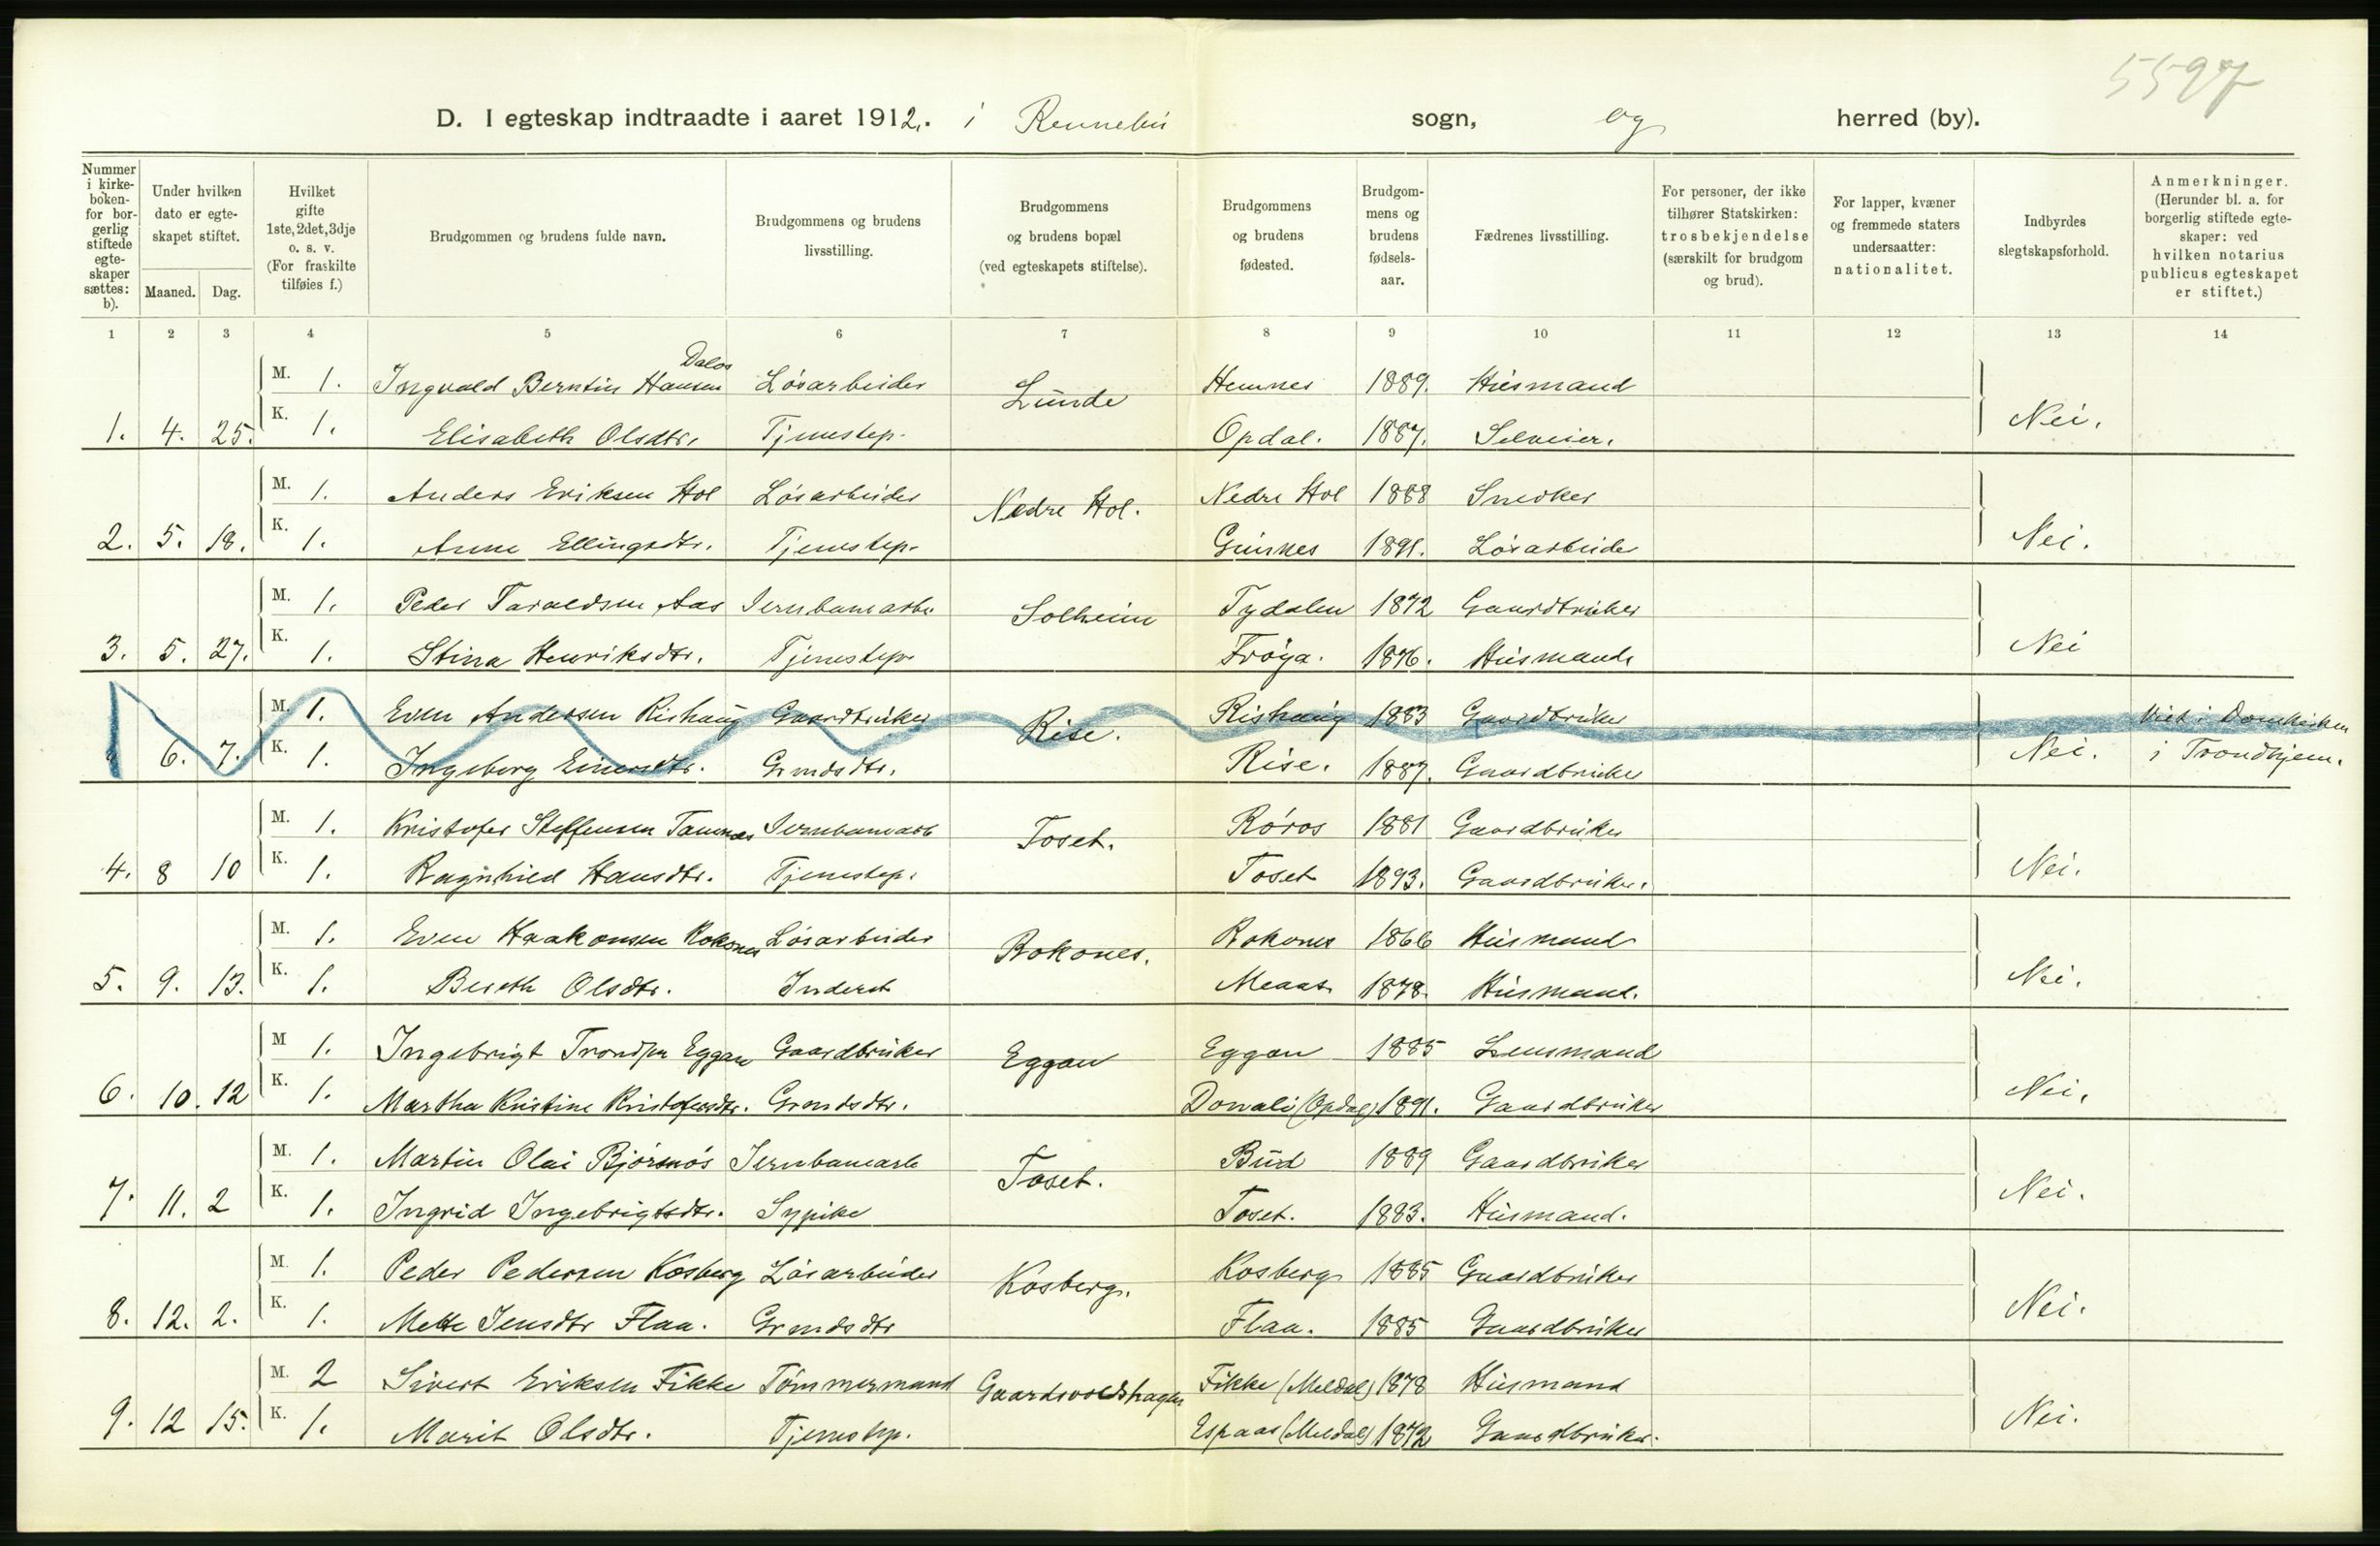 5597
D. I egteskap indtraadte i aaret 1912. i Rennebu sogn, og herred (by).
Nummer i kirke-boken- for bor-gerlig stiftede egte-skaper sættes: b).
Under hvilken dato er egte-skapet stiftet.
Maaned. Dag.
Hvilket gifte 1ste, 2det, 3dje o. s. v. (For fraskilte tilføies f.)
Brudgommen og brudens fulde navn.
Brudgommens og brudens livsstilling.
Brudgommens og brudens bopæl (ved egteskapets stiftelse).
Brudgommens og brudens fødested.
Brudgom-mens og brudens fødsels-aar.
Fædrenes livsstilling.
For personer, der ikke tilhører Statskirken: trosbekjendelse (særskilt for brudgom og brud).
For lapper, kvæner og fremmede staters undersaatter: nationalitet.
Indbyrdes slegtskapsforhold.
Anmerkninger. (Herunder bl. a. for borgerlig stiftede egte-skaper: ved hvilken notarius publicus egteskapet er stiftet.)
1 2 3 4 5 6 7 8 9 10 11 12 13 14
Dalos
M. 1. Ingvald Berntin Hansen Løsarbeider Lunde Hemnes 1889. Husmand
1. 4. 25. K. 1. Elisabeth Olsdtr. Tjenestep. Opdal. 1887. Selveier. Nei.
M. 1. Anders Eriksen Hol Løsarbeider Nedre Hol. Nedre Hol 1888 Snedker
2. 5. 18. K. 1. Anne Ellingsdtr. Tjenestep. 1891. Løsarbeider Nei.
M. 1. Peder Taraldsen Aas Jernbanearb. Solheim Tydalen 1872 Gaardbruker
3. 5. 27. K. 1. Stina Henriksdtr. Tjenestep. Frøya. 1876. Husmand Nei
M. 1. Even Andersen Rishaug Gaardbruker Rise. Rishaug 1883 Gaardbruker Viet i Domkirken
6. 7. K. 1. Ingeborg Einarsdtr. Grmdsdtr. Rise. 1887. Gaardbruker Nei. i Trondhjem.
M. 1. Kristofer Steffensen Tamnæs Jernbanearb Toset. Røros 1881 Gaardbruker
4. 8 10 K. 1. Ragnhild Hansdtr. Tjenestep. Toset 1893. Gaardbruker. Nei.
M. 1. Even Haakonsen Rokones Løsarbeider Rokones. Rokones 1866 Husmand
5. 9. 13. K. 1. Bereth Olsdtr. Inderst 1878. Husmand. Nei.
M 1. Ingebrigt Trondsen Eggan Gaardbruker Eggan Eggan 1885 Lensmand
6. 10. 12 K. 1. Martha Kristine Kristofersdtr. Grmdsdtr. Donali (Opdal) 1891. Gaardbruker Nei.
M. 1. Martin Olai Bjørsnøs Jernbanearb Toset. Bud 1889 Gaardbruker
7. 11. 2 K. 1. Ingrid Ingebrigtsdtr. Sypike Toset. 1883. Husmand. Nei.
M. 1. Peder Pedersen Kosberg Løsarbeider Kosberg. Kosberg 1885 Gaardbruker
8. 12. 2. K. 1. Mette Jensdtr Flaa. Grmdsdtr Flaa. 1885 Gaardbruker Nei.
M. 2 Sivert Eriksen Fikke Tømmermand Gaardsvoldshagen Fikke (Meldal) 1878 Husmand
9. 12 15. K. 1. Marit Olsdtr. Tjenestep. Espaas (Meldal) 1872 Gaardbruker. Nei.